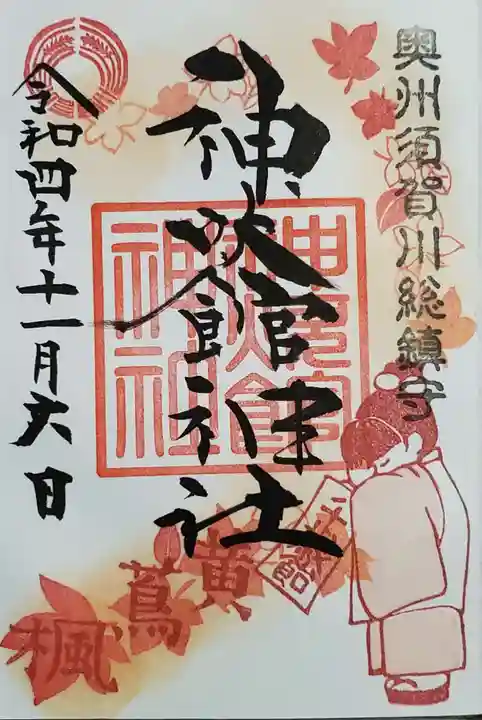 奥州須賀川総鎮守
神炊館神社
神炊館神社
令和四年十一月六日
千歳飴
黄蔦楓